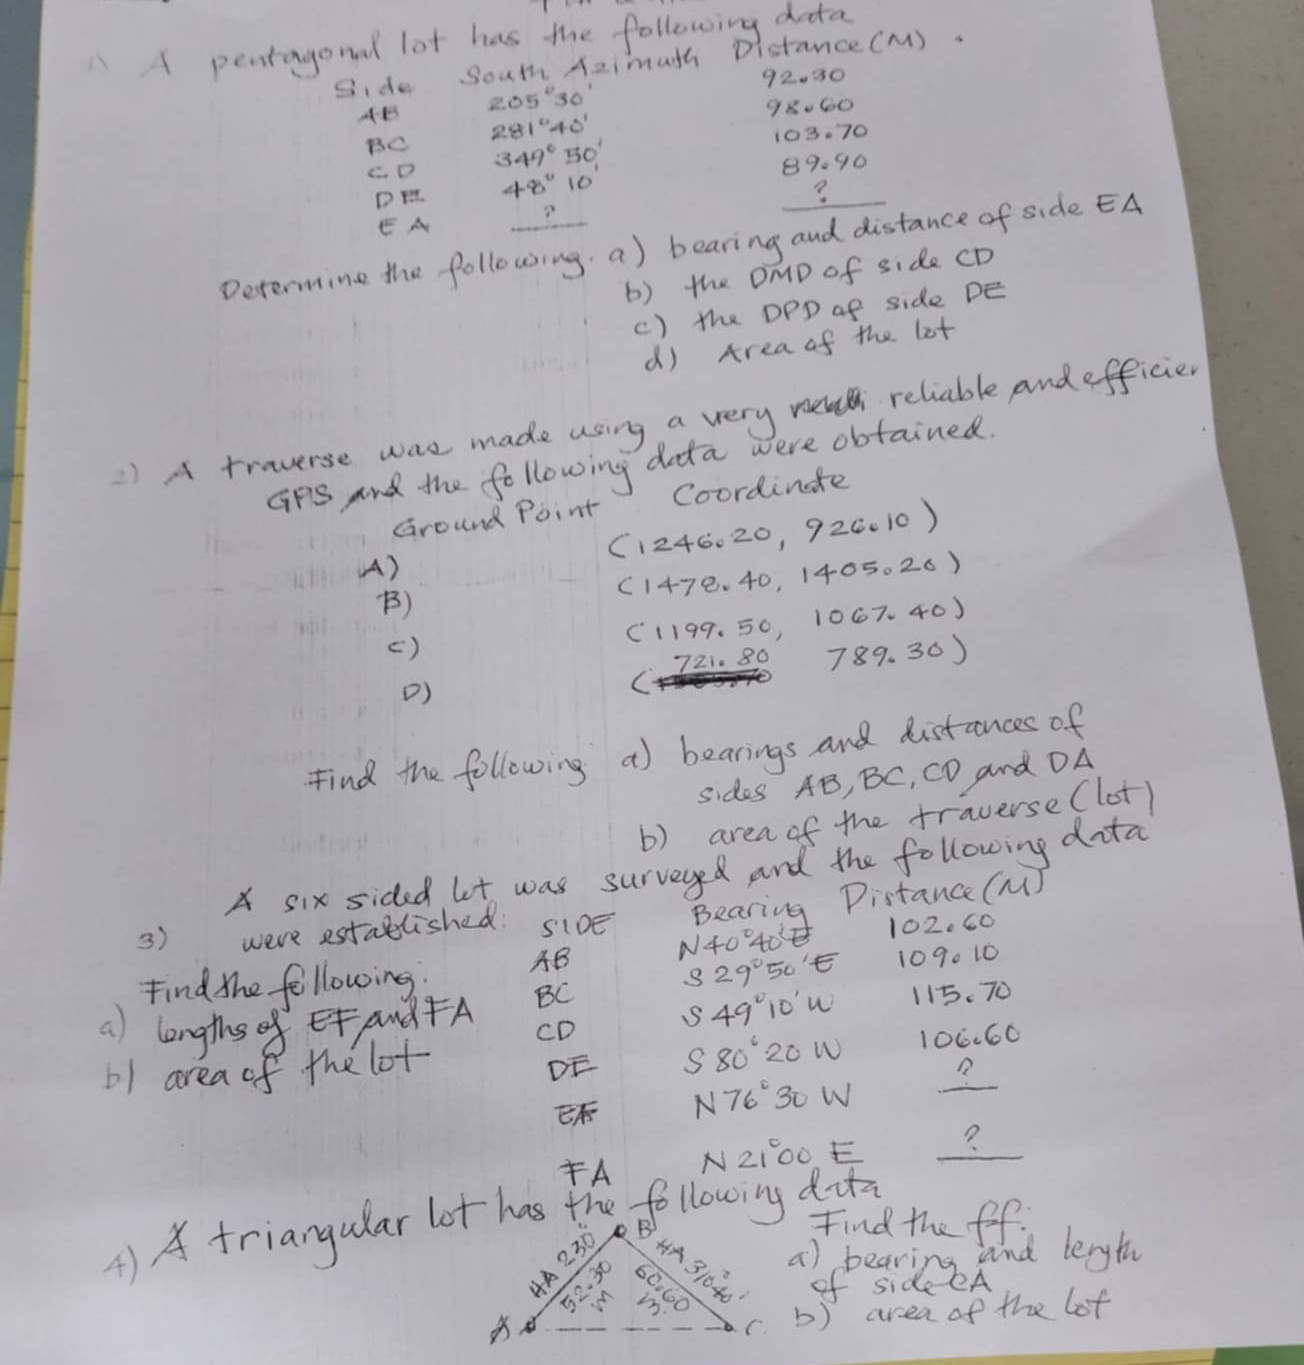 1) A pentagonal lot has the following data
Side South Azimuth Distance (M).
AB 205°30' 92.30
BC 281°40' 98.60
CD 349° 50' 103.70
DE 48° 10' 89.90
EA ? ?
Determine the following. a) bearing and distance of side EA
b) the DMD of side CD
c) the DPD of side DE
d) Area of the lot
2) A traverse was made using a very reliable and efficien
GPS and the following data were obtained.
Ground Point Coordinate
A) (1246.20, 926.10)
B) (1478.40, 1405.20)
C) (1199.50, 1067.40)
D) (721.80 789.30)
Find the following a) bearings and distances of
sides AB, BC, CD and DA
b) area of the traverse (lot)
3) A six sided lot was surveyed and the following data
were established: SIDE Bearing Distance (M)
AB N40°40'E 102.60
Find the following: BC S 29°50'E 109.10
a) lengths of EF and FA CD S 49°10'W 115.70
b) area of the lot DE S 80°20 W 106.60
EF N76°30 W ?
FA N 21°00 E ?
4) A triangular lot has the following data
B Find the ff:
HA 230° HA 310°40' a) bearing and length
52.30 m 60.60 m. of side CA
A C b) area of the lot